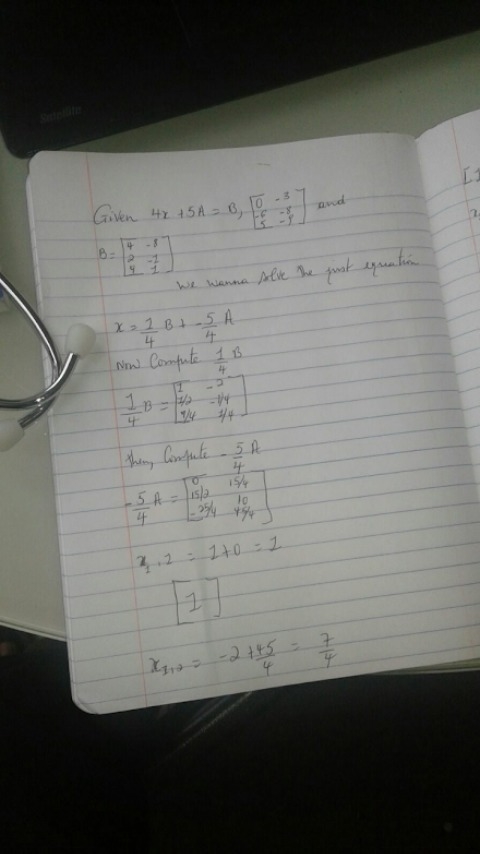 Satellite
Given 4x + 5A = B, [0 -3
-6 -8
5 -9] and
B = [4 -8
2 -1
9 1]
We wanna solve the equation
x = 1/4 B + -5/4 A
Now Compute 1/4 B
1/4 B = [1 -2
1/2 -1/4
9/4 1/4]
then, Compute -5/4 A
-5/4 A = [0 15/4
15/2 10
-25/4 45/4]
= 1+0 = 1
[1]
= -2 + 15/4 = 7/4